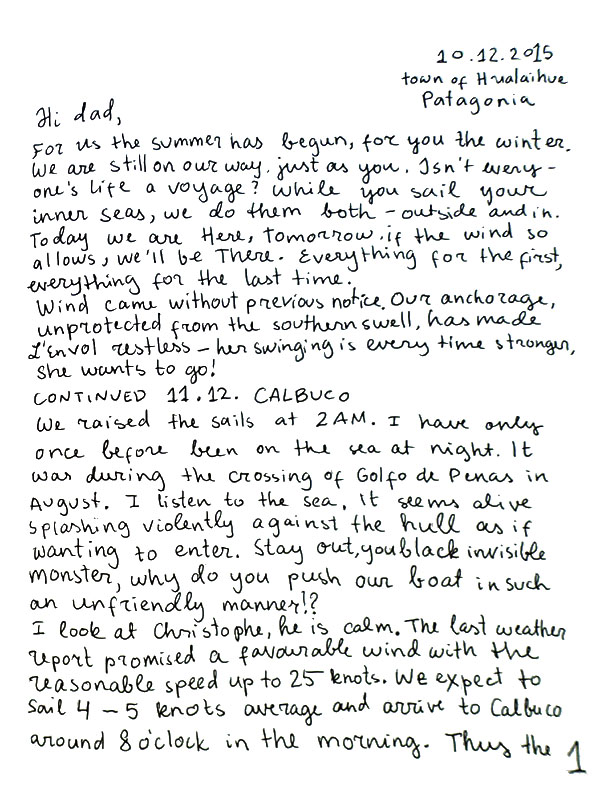 10.12.2015
town of Hualaihue
Patagonia
Hi dad,
For us the summer has begun, for you the winter.
We are still on our way, just as you. Isn't every-
one's life a voyage? While you sail your
inner seas, we do them both - outside and in.
Today we are Here, tomorrow, if the wind so
allows, we'll be There. Everything for the first,
everything for the last time.
Wind came without previous notice. Our anchorage,
unprotected from the southern swell, has made
L'Envol restless - her swinging is every time stronger,
she wants to go!
CONTINUED 11.12. CALBUCO
We raised the sails at 2AM. I have only
once before been on the sea at night. It
was during the crossing of Golfo de Penas in
August. I listen to the sea. It seems alive
splashing violently against the hull as if
wanting to enter. Stay out, you black invisible
monster, why do you push our boat in such
an unfriendly manner!?
I look at Christophe, he is calm. The last weather
report promised a favourable wind with the
reasonable speed up to 25 knots. We expect to
sail 4 - 5 knots average and arrive to Calbuco
around 8 o'clock in the morning. Thus the 1